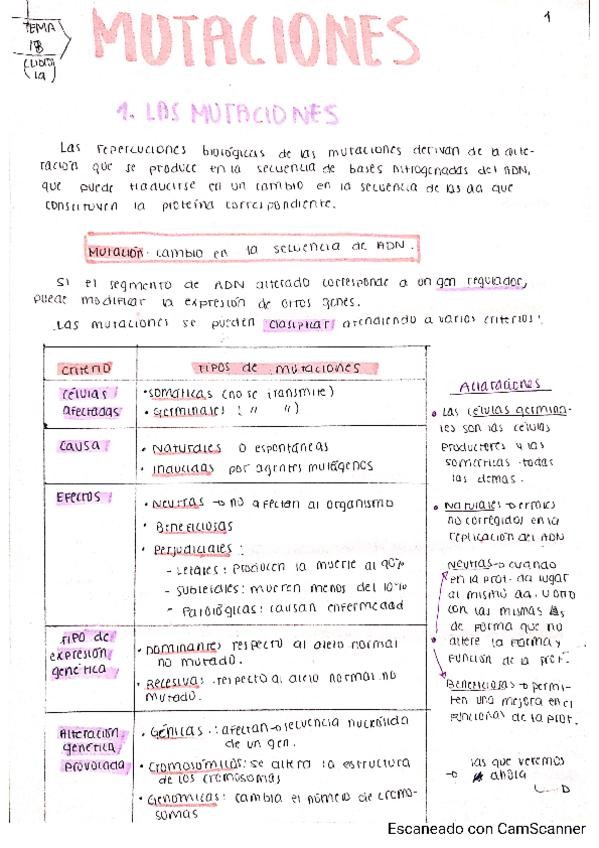 TEMA
18
MUTACIONES
1
1. LAS MUTACIONES
Las repercuciones biológicas de las mutaciones derivan de la alte-
ración que se produce en la secuencia de bases nitrogenadas del ADN,
que puede traducirse en un cambio en la secuencia de los aa que
constituyen la proteína correspondiente.
MUTACIÓN: cambio en la secuencia de ADN.
Si el segmento de ADN alterado corresponde a un gen regulador,
puede modificar la expresión de otros genes.
Las mutaciones se pueden clasificar atendiendo a varios criterios:
CRITERIO
TIPOS de mutaciones
CÉLULAS
afectadas
• SOMÁTICAS (no se transmite)
• GERMINALES ( " ")
CAUSA
• NATURALES o espontáneas
• INDUCIDAS por agentes mutágenos
EFECTOS
• NEUTRAS → no afectan al organismo
• BENEFICIOSAS
• PERJUDICIALES:
- Letales: producen la muerte al 90%
- Subletales: mueren menos del 10%
- Patológicas: causan enfermedad
TIPO de
expresión
genética
• DOMINANTES respecto al alelo normal
no mutado.
• RECESIVAS respecto al alelo normal no
mutado.
Alteración
genética
provocada
• GÉNICAS: afectan → secuencia nucleótida
de un gen.
• CROMOSÓMICAS: se altera la estructura
de los cromosomas
• GENÓMICAS: cambia el número de cromo-
somas
Aclaraciones
• Las células germina-
les son las células
productores y las
somáticas todas
las demas.
• Naturales → errores
no corregidos en la
replicación del ADN
Neutras → cuando
en la prot. da lugar
al mismo aa. u otro
con las mismas
de forma que no
altere la forma y
función de la prot.
Beneficiosas → permi-
ten una mejora en el
funcionas de la prot.
→ las que veremos
ahora
Escaneado con CamScanner